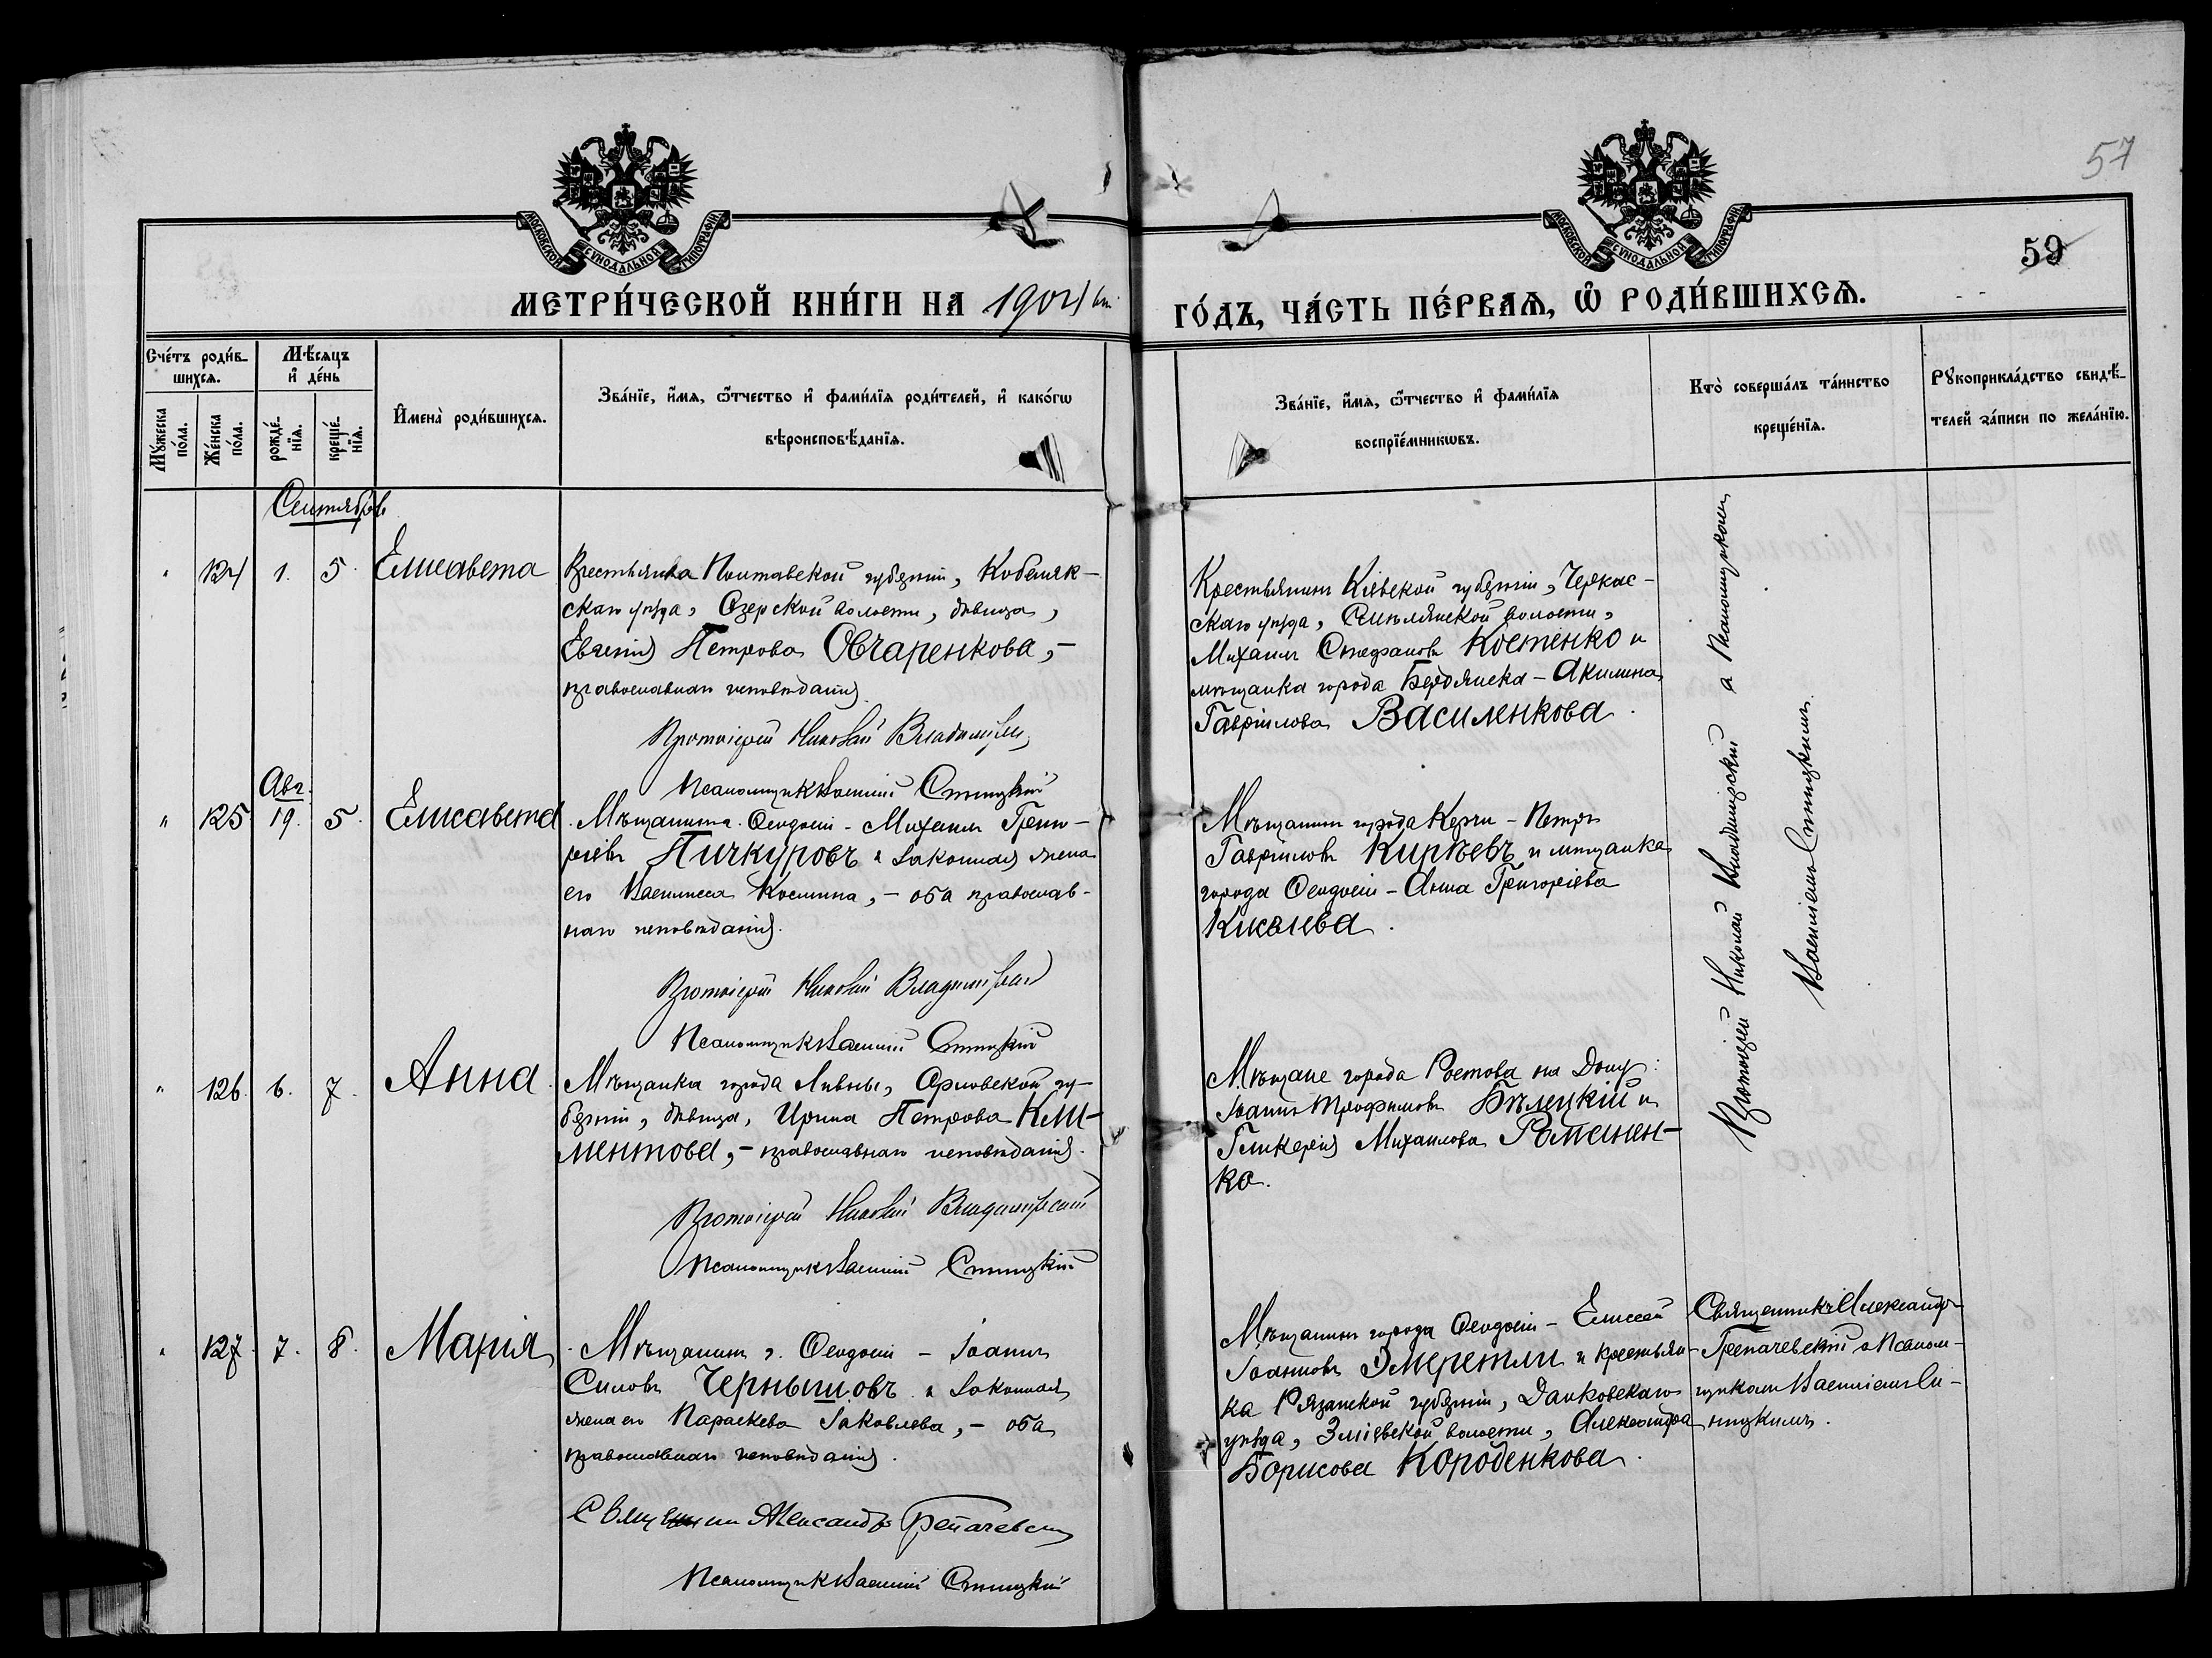 57
59
МОСКОВСКОЙ СѴНОДАЛЬНОЙ ТИПОГРАФІИ
МОСКОВСКОЙ СѴНОДАЛЬНОЙ ТИПОГРАФІИ
МЕТРИ́ЧЕСКОЙ КНИ́ГИ НА 1904
ГО́ДЪ, ЧА́СТЬ ПЕ́РВАѦ, Ѽ РОДИ́ВШИХСѦ.
Сче́тъ роди́в-
шихсѧ.
Мѣ́сяцъ
и҆ де́нь
Мꙋ́жеска
по́ла.
Же́нска
по́ла.
рожде́-
нїѧ.
креще́-
нїѧ.
И҆мена̀ роди́вшихсѧ.
Зва́нїе, и҆́мѧ, ѻ҆́тчество и҆ фами́лїѧ роди́телей, и҆ како́гѡ
вѣроисповѣ́данїѧ.
Зва́нїе, и҆́мѧ, ѻ҆́тчество и҆ фами́лїѧ
воспрїе́мникѡвъ.
Кто̀ соверша́лъ та́инство
креще́нїѧ.
Рꙋкоприкла́дство свидѣ́-
телей за́писи по жела́нїю.
Сентябрь
" 124 1. 5. Елисавета
Крестьянка Полтавской губерніи, Кобеляк-
скаго уѣзда, Озерской волости, дѣвица,
Евгенія Петрова Овчаренкова, -
православнаго исповѣданія.
Протоіерей Николай Владимірскій
Псаломщикъ Василій Синицкій
Крестьянинъ Кіевской губерніи, Черкас-
скаго уѣзда, Смѣлянской волости,
Михаилъ Стефановъ Костенко и
мѣщанка города Бердянска - Акилина
Гавріилова Василенкова.
Протоіерей Николай Владимірскій а Псаломщикомъ
Василіемъ Синицкимъ.
Авг.
" 125 19. 5. Елисавета
Мѣщанинъ г. Ѳеодосіи - Михаилъ Григо-
ріевъ Пичкуровъ и законная жена
его Василисса Космина, - оба православ-
наго исповѣданія.
Протоіерей Николай Владимірскій
Псаломщикъ Василій Синицкій
Мѣщанинъ города Керчи - Петръ
Гавріиловъ Кирѣевъ и мѣщанка
города Ѳеодосіи - Анна Григоріева
" 126. 6. 7. Анна.
Мѣщанка города Ливны, Орловской гу-
берніи, дѣвица, Ирина Петрова Кли-
ментова, - православнаго исповѣданія.
Протоіерей Николай Владимірскій
Псаломщикъ Василій Синицкій
Мѣщане города Ростова на Дону:
Іоаннъ Трофимовъ Бѣлецкій и
Гликерія Михаилова Романен-
ко.
" 127. 7. 8. Марія
Мѣщанинъ г. Ѳеодосіи - Іоаннъ
Силовъ Чернышовъ и законная
жена его Параскева Іаковлева, - оба
православнаго исповѣданія.
Священникъ Александръ Грепачевскій
Псаломщикъ Василій Синицкій
Мѣщанинъ города Ѳеодосіи - Елисей
Іоанновъ Эмеретли и крестьян-
ка Рязанской губерніи, Данковскаго
уѣзда, Зміевской волости, Александра
Борисова Короденкова.
Священникъ Александръ
Грепачевскій а Псалом-
щикомъ Василіемъ Си-
ницкимъ.